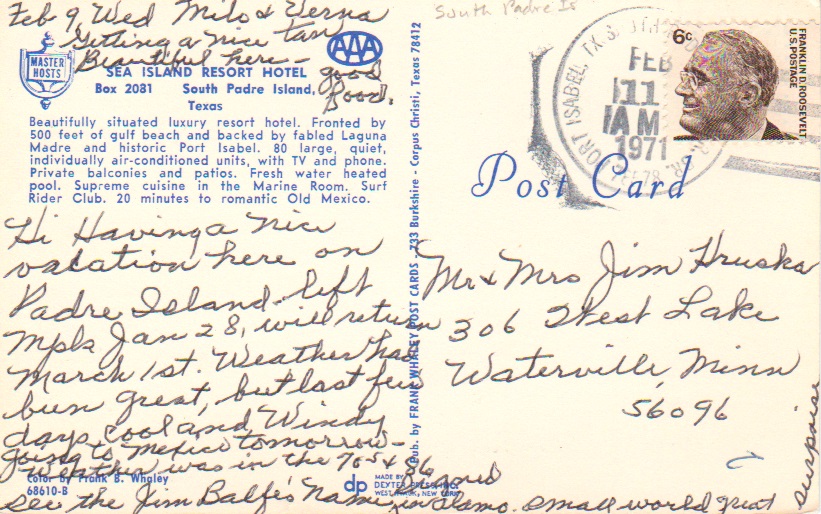 South Padre Is
Feb 9, Wed Milo & Verna
Getting a nice tan
Beautiful here -
good
food.
MASTER
HOSTS
AAA
SEA ISLAND RESORT HOTEL
Box 2081 South Padre Island,
Texas
Beautifully situated luxury resort hotel. Fronted by
500 feet of gulf beach and backed by fabled Laguna
Madre and historic Port Isabel. 80 large, quiet,
individually air-conditioned units, with TV and phone.
Private balconies and patios. Fresh water heated
pool. Supreme cuisine in the Marine Room. Surf
Rider Club. 20 minutes to romantic Old Mexico.
Hi Having a nice
vacation here on
Padre Island. left
Mpls Jan 28, will return
March 1st. Weather has
been great, but last few
days cool and Windy
going to Mexico tomorrow -
Weather was in the 70s & 80
see the Jim Balfe's Name signed
in Alamo. small world great
surprise
Color by Frank B. Whaley
68610-B
dp
MADE BY
DEXTER PRESS, INC.
WEST NYACK, NEW YORK
Pub. by FRANK WHALEY POST CARDS - 733 Burkshire - Corpus Christi, Texas 78412
PORT ISABEL, TX
FEB
11
AM
1971
6c
FRANKLIN D. ROOSEVELT
U.S. POSTAGE
Post Card
Mr & Mrs Jim Hruska
306 West Lake
Waterville, Minn
56096